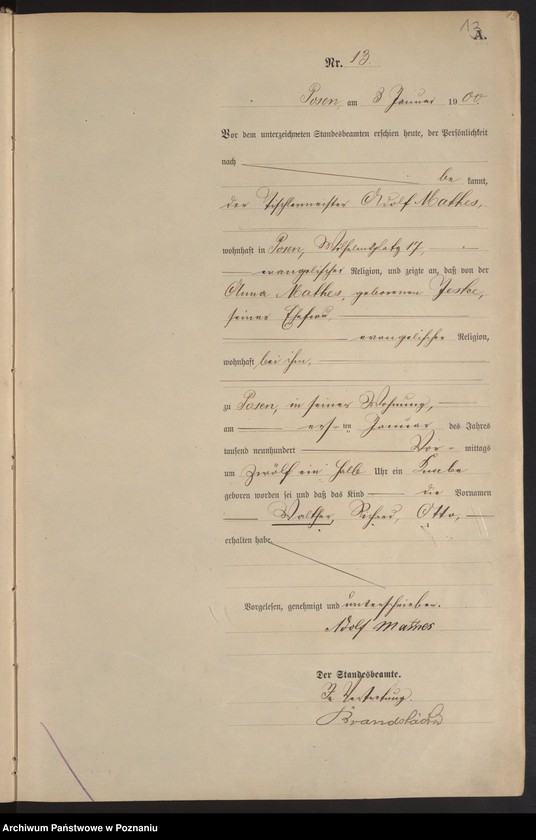 13
13
A.
Nr. 13.
Posen, am 3 Januar 1900.
Vor dem unterzeichneten Standesbeamten erschien heute, der Persönlichkeit
nach
be kannt,
der Tischlermeister Adolf Mathes,
wohnhaft in Posen, Wilhelmsplatz 17,
evangelischer Religion, und zeigte an, daß von der
Anna Mathes, geborenen Jeske,
seiner Ehefrau,
evangelischer Religion,
wohnhaft bei ihm,
zu Posen, in seiner Wohnung,
am ersten Januar des Jahres
tausend neunhundert Vormittags
um Zwölf ein halb Uhr ein Knabe
geboren worden sei und daß das Kind die Vornamen
Walther, Otto,
erhalten habe.
Vorgelesen, genehmigt und unterschrieben.
Adolf Mathes
Der Standesbeamte.
In Vertretung.
Archiwum Państwowe w Poznaniu